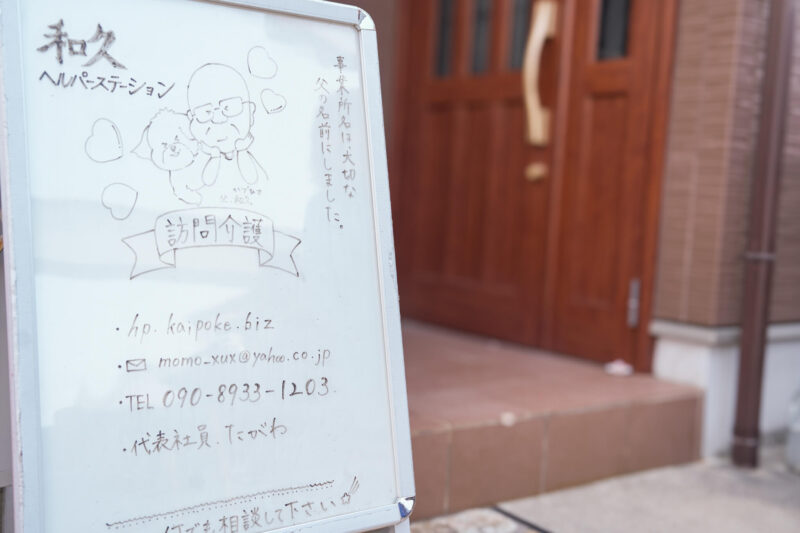 和久
ヘルパーステーション
事業所名は、大切な
父の名前にしました。
かずひさ
父.和久
訪問介護
・hp.kaipoke.biz
・✉ momo_xux@yahoo.co.jp
・TEL 090-8933-1203
・代表社員.たがわ
何でも相談して下さい